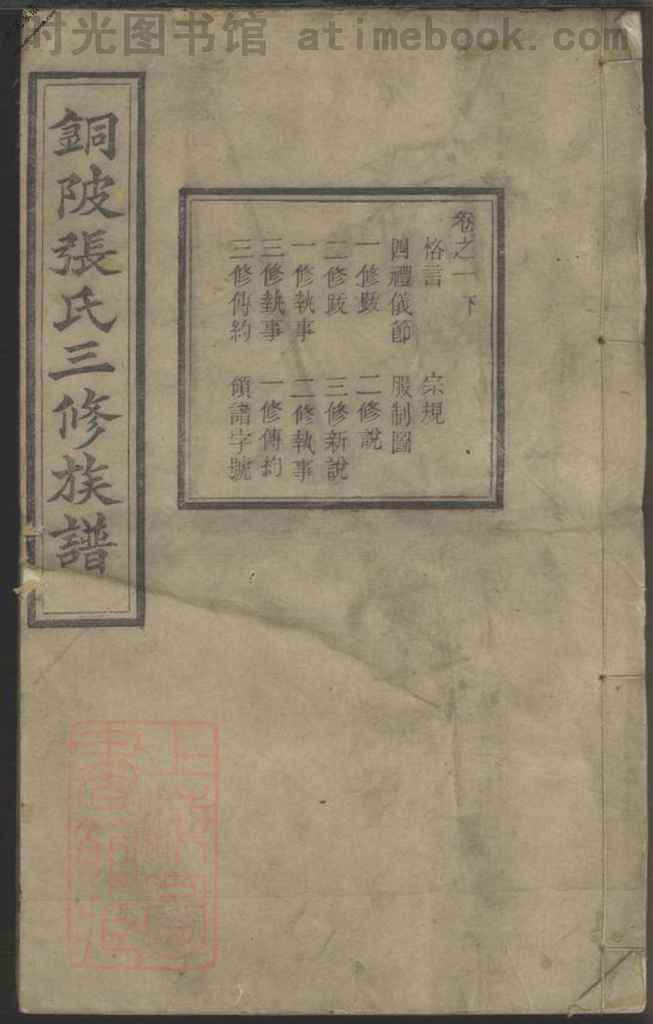 时光图书馆 atimebook.com
銅陂張氏三修族譜
卷之一 下
恪言 宗規
四禮儀節 服制圖
一修跋 二修說
二修跋 三修新說
一修執事 二修執事
三修執事 一修傳約
三修傳約 領譜字號